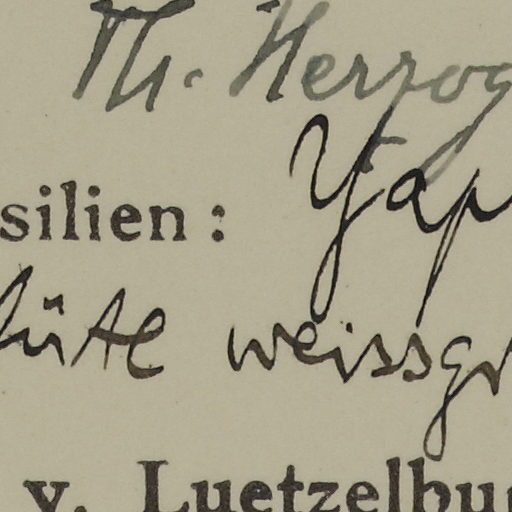 Th. Herzog
silien: Yap
lüte weissgr
v. Luetzelbu